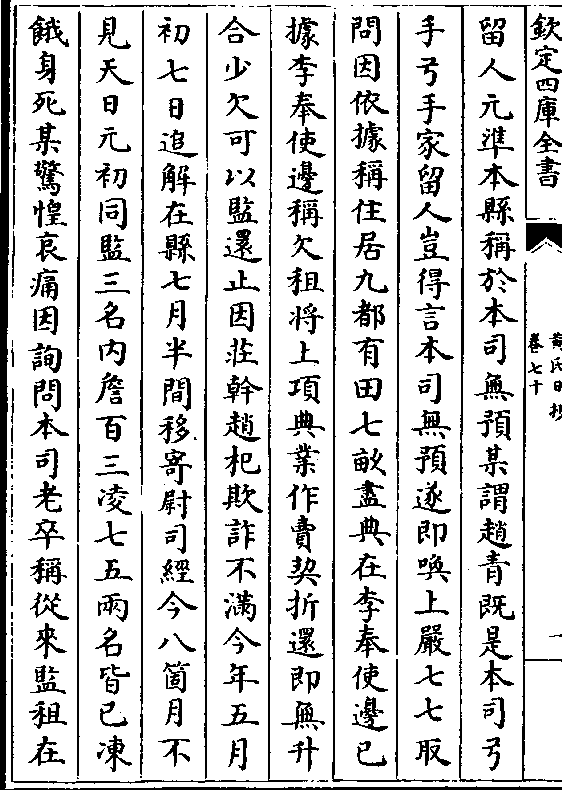 欽定四庫全書
黄氏日抄
卷七十
一
留人元準本縣稱於本司無預某謂趙青既是本司弓
手弓手家留人豈得言本司無預遂即喚上嚴七七取
問因依據稱住居九都有田七畝盡典在李奉使邊已
據李奉使邊稱欠租將上項典業作賣契折還即無升
合少欠可以監還止因莊幹趙杞欺詐不滿今年五月
初七日追解在縣七月半間移寄尉司經今八箇月不
見天日元初同監三名内詹百三凌七五兩名皆已凍
餓身死某驚惶哀痛因詢問本司老卒稱從來監租在